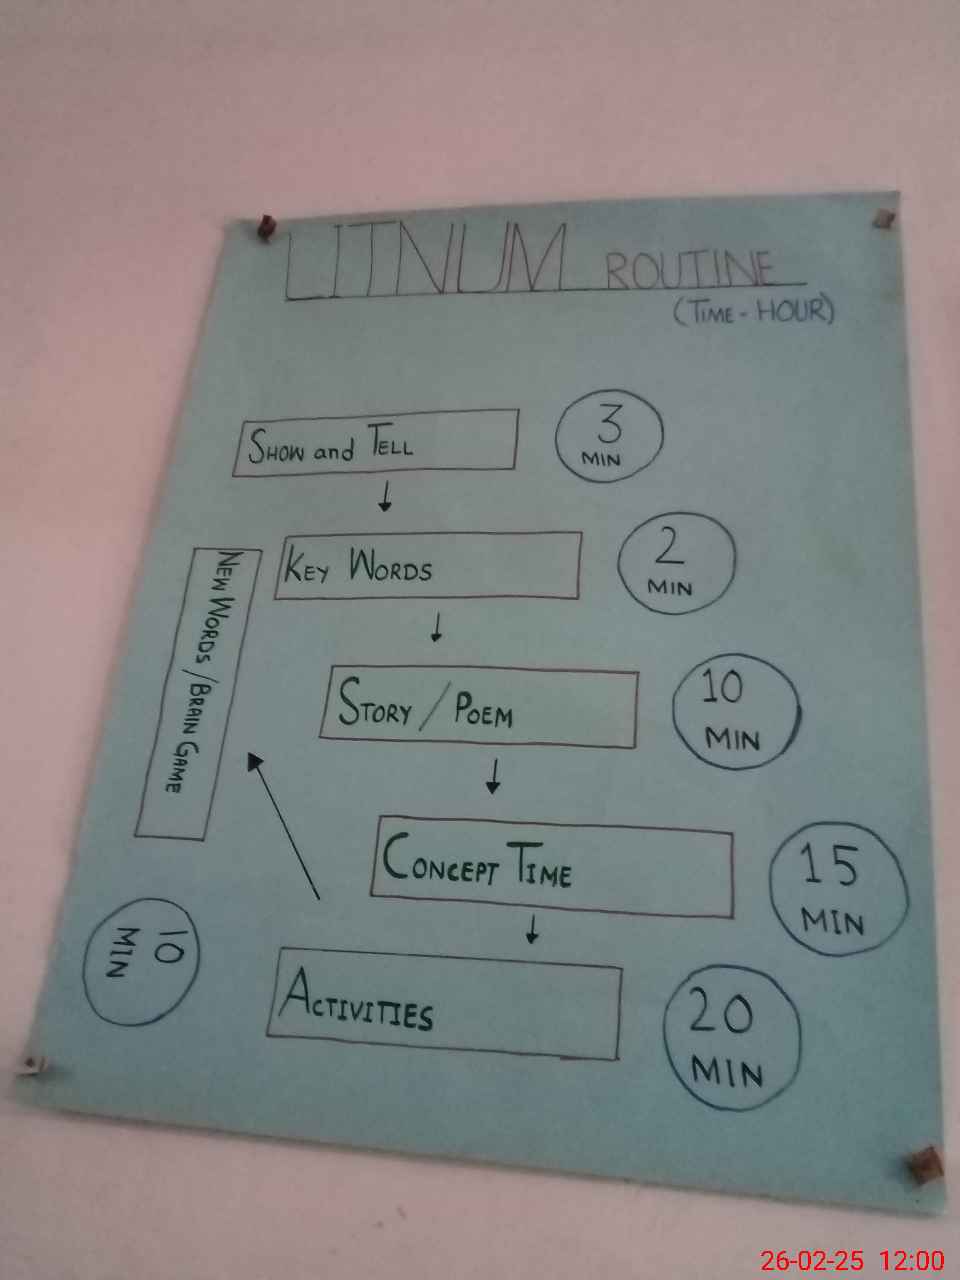 LITNUM ROUTINE
(TIME - HOUR)
SHOW and TELL
3
MIN
KEY WORDS
2
MIN
STORY / POEM
10
MIN
CONCEPT TIME
15
MIN
ACTIVITIES
20
MIN
NEW WORDS / BRAIN GAME
10
MIN
26-02-25 12:00